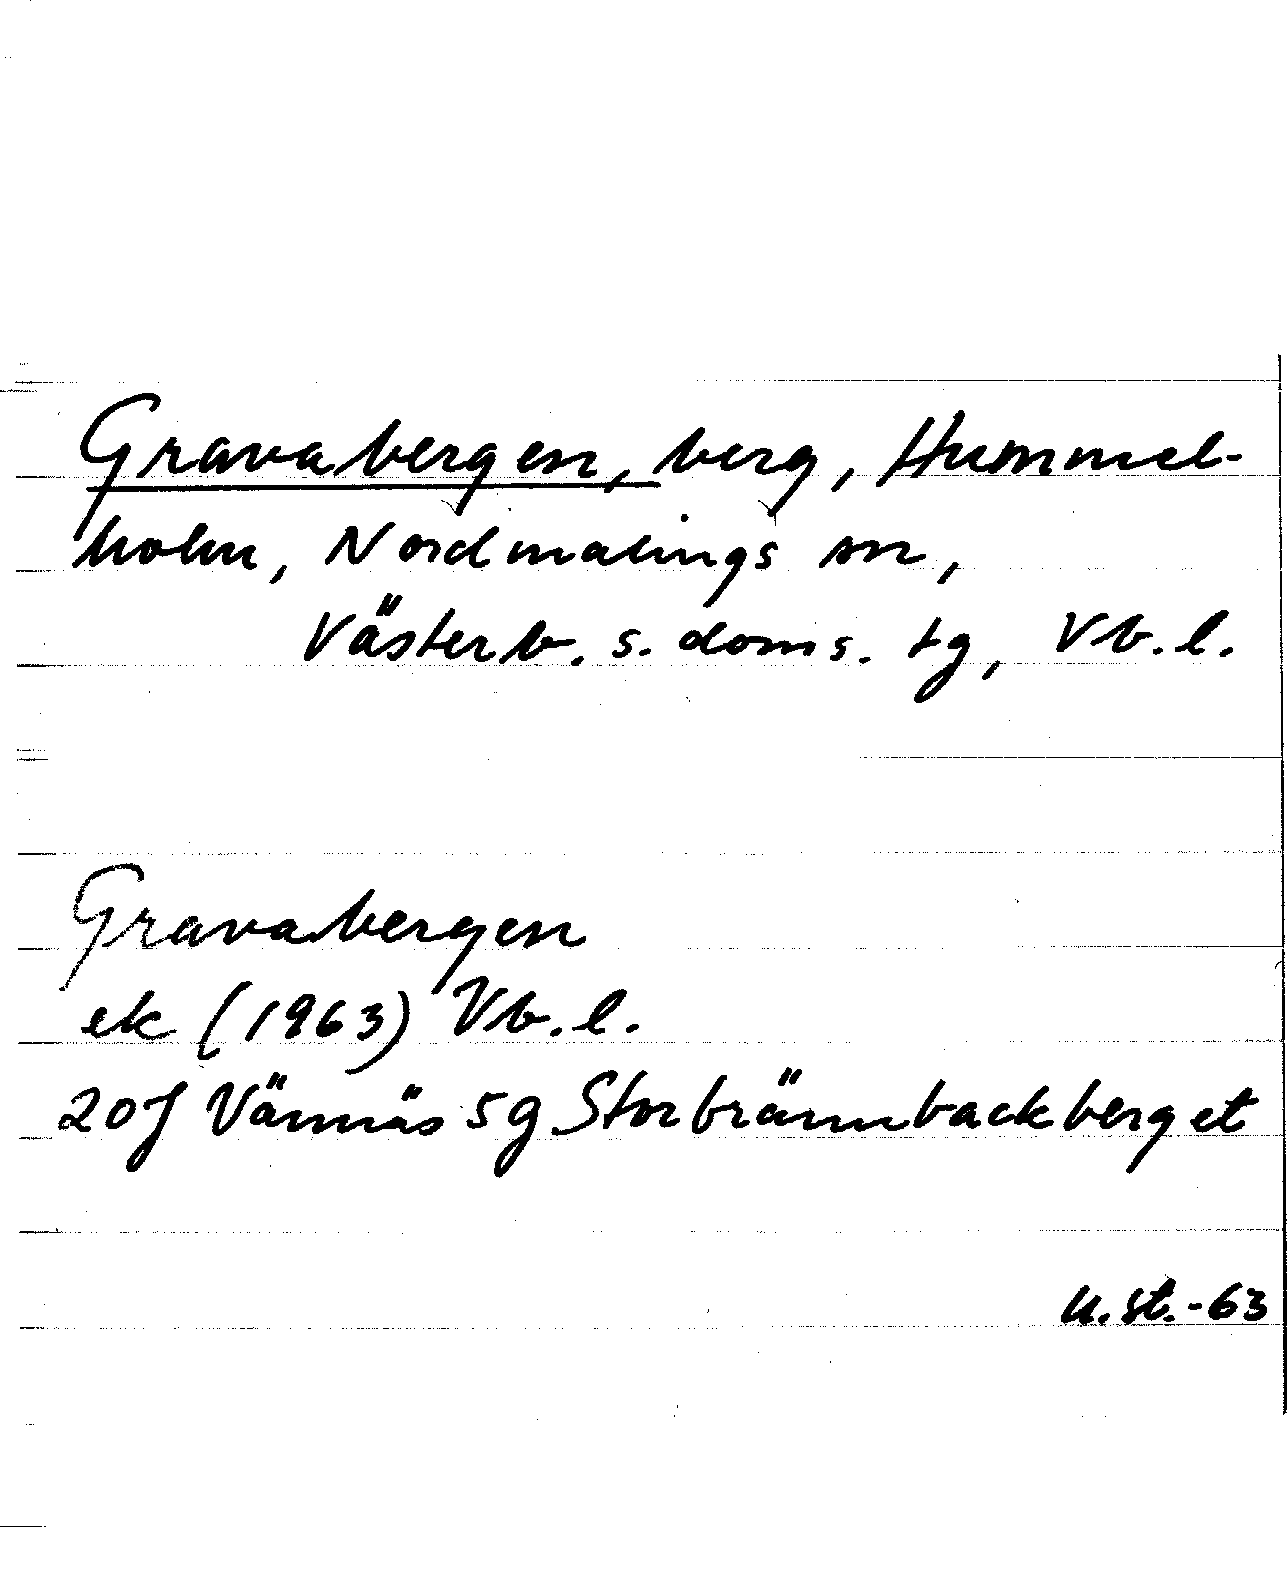 Gravabergen, berg, Hummel-
holm, Nordmalings sn,
Västerb. s. doms. tg, Vb. l.
Gravabergen
ek (1963) Vb. l.
20J Vännäs 5g Storbrännbackberget
U. St. -63